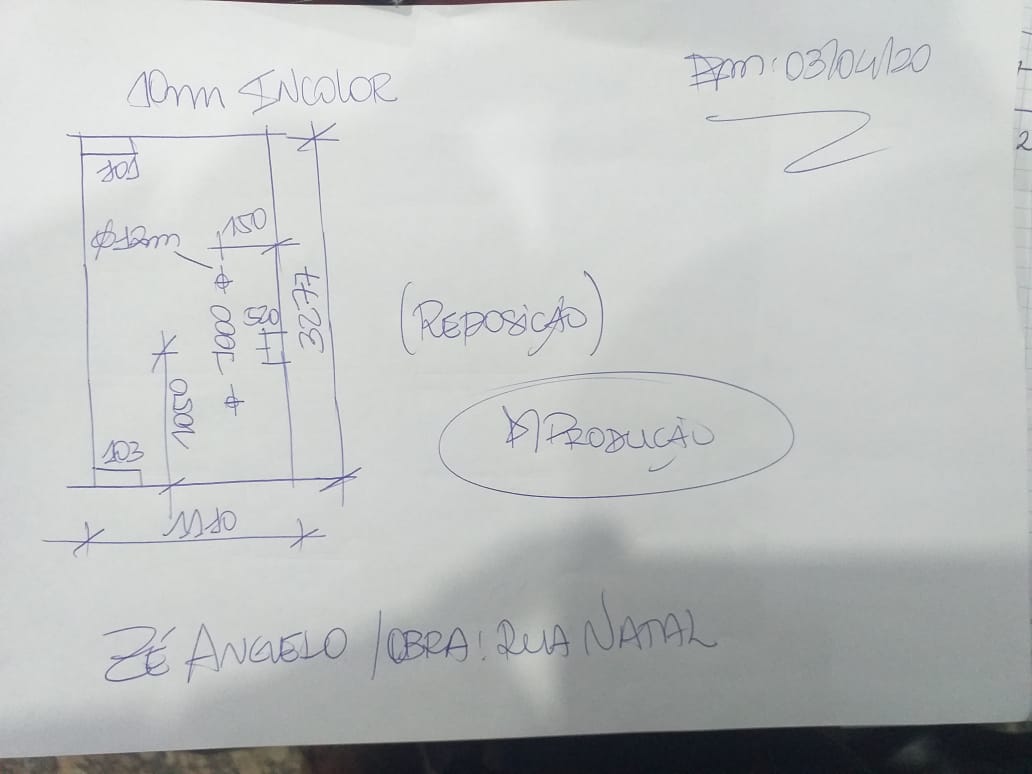 10mm INCOLOR
Dpm: 03/04/20
101
150
Ø12m
1000
520
3277
(REPOSIÇÃO)
1050
103
P/ PRODUÇÃO
1110
ZÉ ANGELO / OBRA: RUA NATAL
2